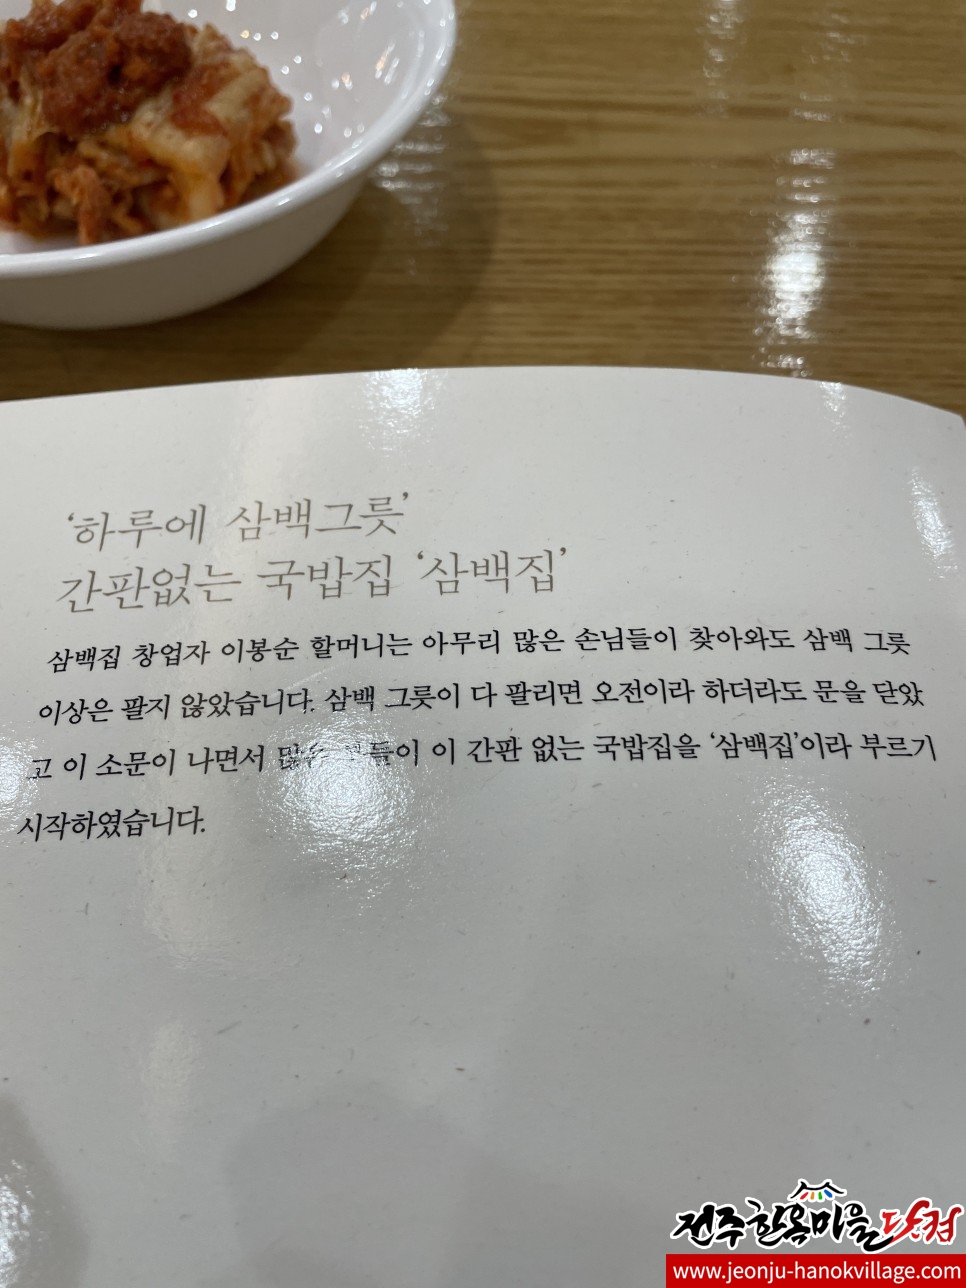 ‘하루에 삼백그릇’
간판없는 국밥집 ‘삼백집’
삼백집 창업자 이봉순 할머니는 아무리 많은 손님들이 찾아와도 삼백 그릇
이상은 팔지 않았습니다. 삼백 그릇이 다 팔리면 오전이라 하더라도 문을 닫았
고 이 소문이 나면서 많은 이 간판 없는 국밥집을 ‘삼백집’이라 부르기
시작하였습니다.
전주한옥마을닷컴
www.jeonju-hanokvillage.com